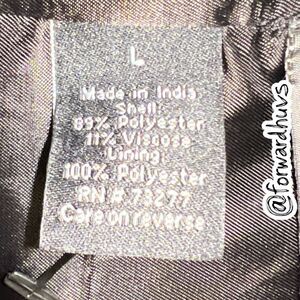 L
Made in India
Shell:
89% Polyester
11% Viscose
Lining:
100% Polyester
RN # 73277
Care on reverse
@forwardhuvs